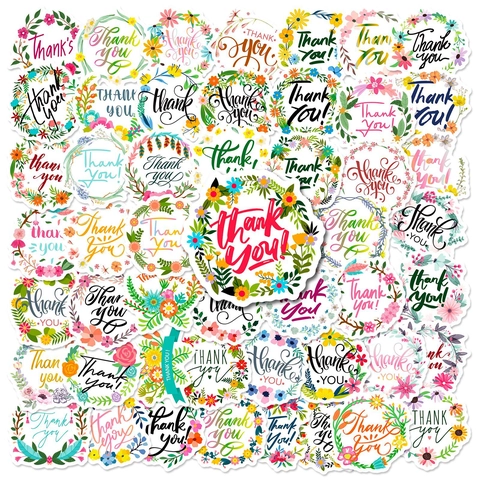 Thanks
Thank
you
thank
you
THANK
you
Thank
You!
Thank
You
Thank
you
thank
you!
THANK
YOU
Thank
Thank
you
Thank
You!
THANK
YOU!
Thank
You!
thank
you
Thank
You
Thank
You
thank
you!
Thank
You!
Thank
you
thank
you
thank
you
Thank
You
Thank
You
thank
you!
Thank
you
Thank
you
thank
YOU
Thank
you
thank
you!
thank
you!
Thank
you!
Thank
You!
THANK
you
thank
YOU
thank
YOU
thank
YOU
Thank
you
thank
you
thank
you!
Thank
you
Thank
You!
Thank
you
Thank
You
THANK
YOU